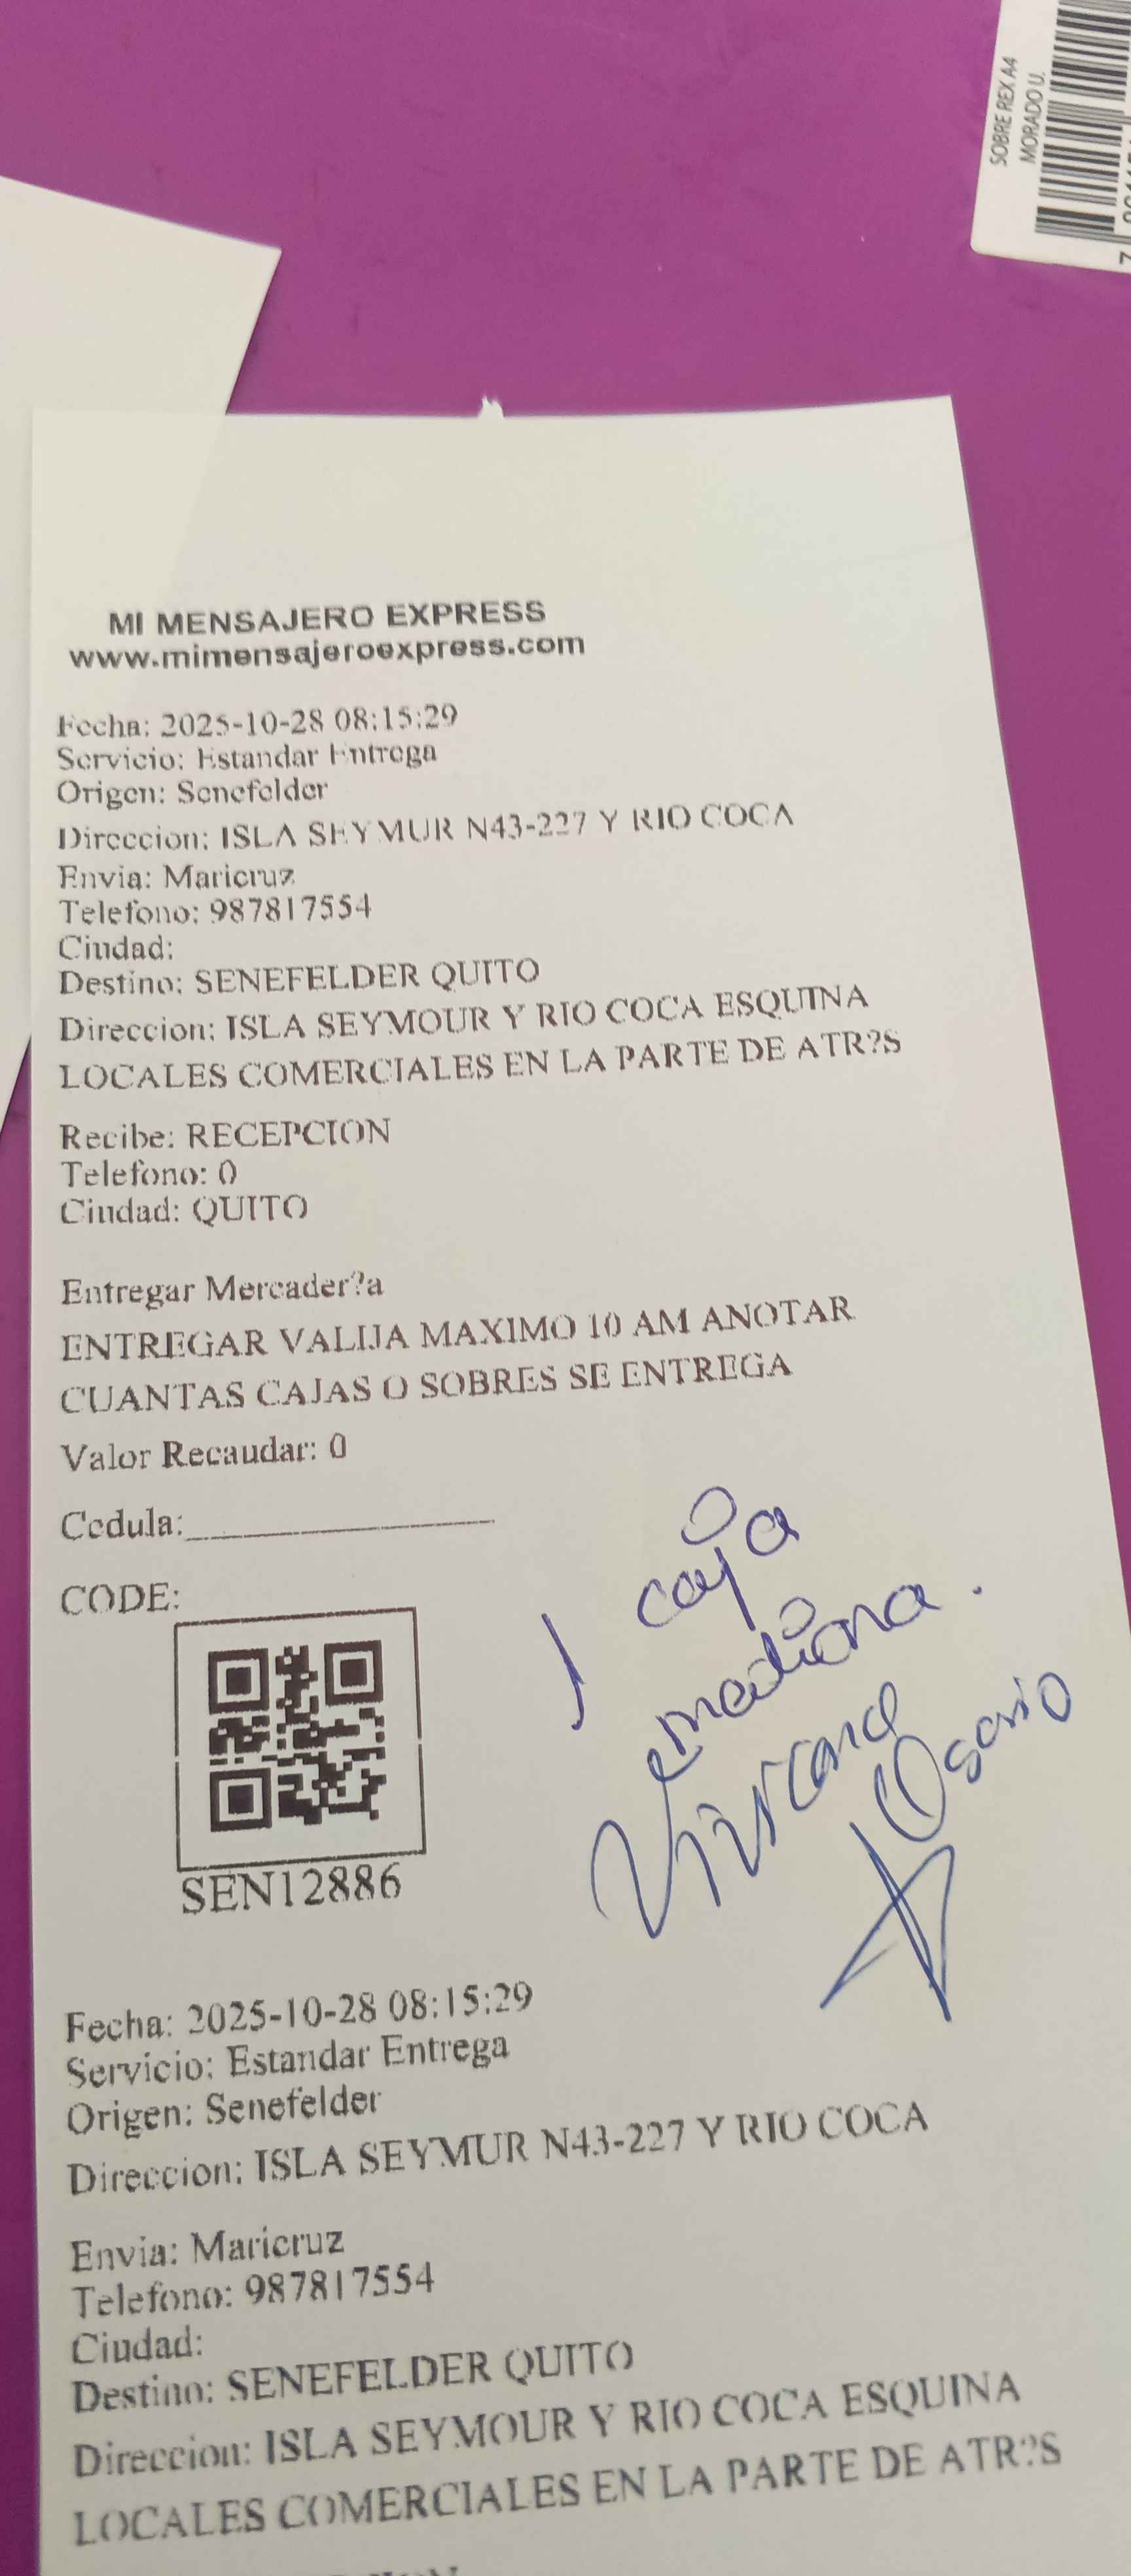 SOBRE REX A4
MORADO U.
MI MENSAJERO EXPRESS
www.mimensajeroexpress.com
Fecha: 2025-10-28 08:15:29
Servicio: Estandar Entrega
Origen: Senefelder
Direccion: ISLA SEYMUR N43-227 Y RIO COCA
Envia: Maricruz
Telefono: 987817554
Ciudad:
Destino: SENEFELDER QUITO
Direccion: ISLA SEYMOUR Y RIO COCA ESQUINA
LOCALES COMERCIALES EN LA PARTE DE ATR?S
Recibe: RECEPCION
Telefono: 0
Ciudad: QUITO
Entregar Mercader?a
ENTREGAR VALIJA MAXIMO 10 AM ANOTAR
CUANTAS CAJAS O SOBRES SE ENTREGA
Valor Recaudar: 0
Cedula:
CODE:
SEN12886
1 caja
mediana.
Viviana
Osorio
Fecha: 2025-10-28 08:15:29
Servicio: Estandar Entrega
Origen: Senefelder
Direccion: ISLA SEYMUR N43-227 Y RIO COCA
Envia: Maricruz
Telefono: 987817554
Ciudad:
Destino: SENEFELDER QUITO
Direccion: ISLA SEYMOUR Y RIO COCA ESQUINA
LOCALES COMERCIALES EN LA PARTE DE ATR?S